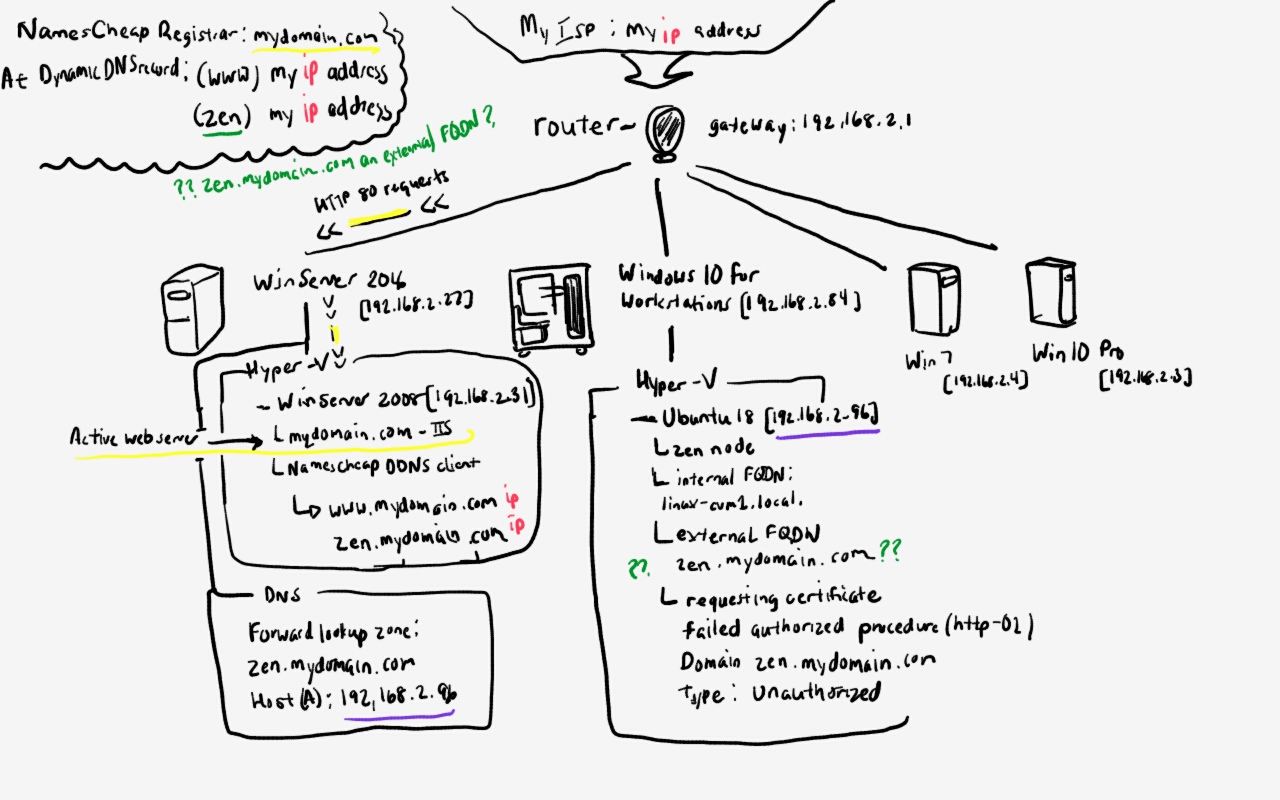 NamesCheap Registrar: mydomain.com
At DynamicDNSrecord: (www) my ip address
(zen) my ip address
My Isp : my ip address
router
gateway: 192.168.2.1
?? zen.mydomain.com an external FQDN?
HTTP 80 requests
<< <<
WinServer 2016
[192.168.2.22]
Hyper-V
- WinServer 2008 [192.168.2.31]
Active webserver
mydomain.com - IIS
Namescheap DDNS client
www.mydomain.com ip
zen.mydomain.com ip
DNS
Forward lookup zone:
zen.mydomain.com
Host (A): 192.168.2.96
Windows 10 for
Workstations [192.168.2.84]
Hyper-V
Ubuntu 18 [192.168.2.96]
zen node
internal FQDN:
linux-cvm1.local.
external FQDN
?? zen.mydomain.com ??
requesting certificate
failed authorized procedure (http-01)
Domain zen.mydomain.com
Type: Unauthorized
Win 7
[192.168.2.4]
Win 10 Pro
[192.168.2.3]